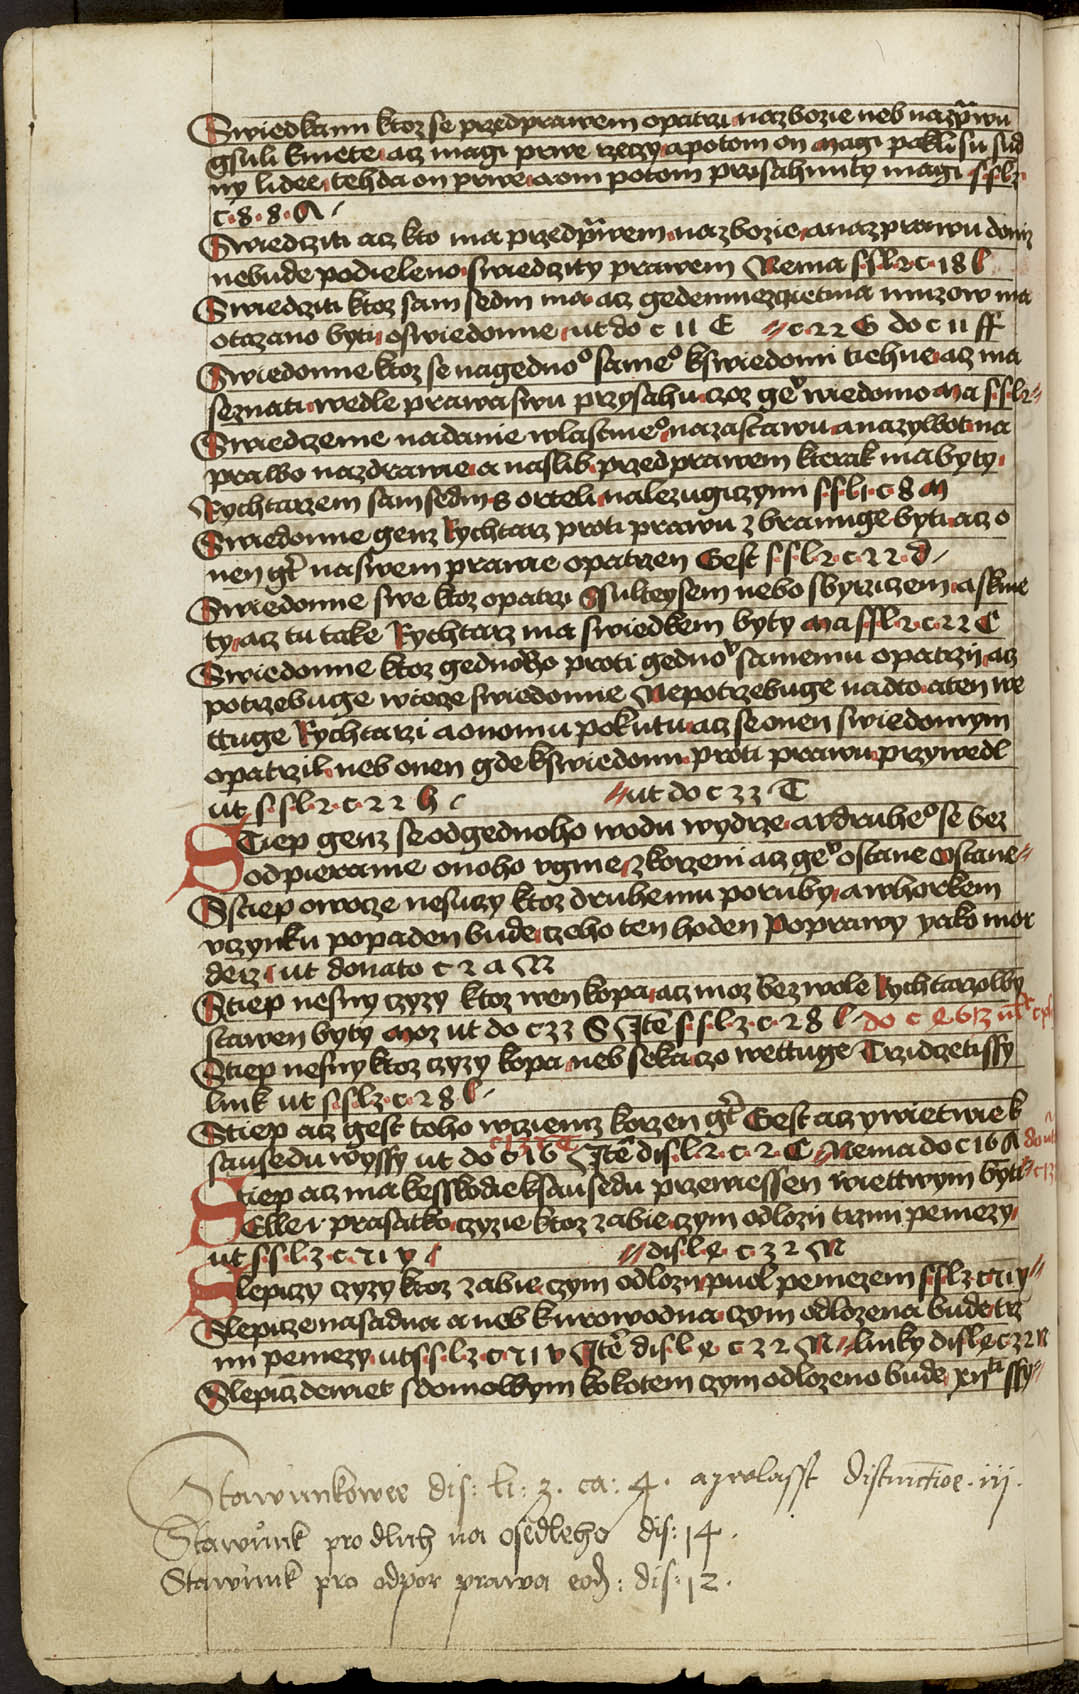 Swiedkům ktoz se przedprawem opatrzi nazbozie neb nazprawu
gsuli kmete acz magi prwe rzeczy apotom on magi pakli su sud
ny lidee tehda on prwe aom potom przisahnuty magi s s l 2
c 8 8 A
Swiedcziti acz kto ma przedprawem nazbozie anazprawu doniz
nebude podieleno swiedczity prawem Nema s s l 2 c 18 l
Swiedcziti ktoz sam sedm ma acz geden mezgietma muzow ma
otazano byti oswiedomie ut do c 11 E c 22 G do c 11 ff
Swiedomie ktoz se nagedno° same° kswiedomi tiehne acz ma
seznati wedle prawa swu przysahu czoz ge° wiedomo Ma s s l 2
Swiedczenie nadanie wlastnie° nazastawu anazywot na
prawo nazdrawie a naslib przed prawem kterak ma byty
Rychtarzem samsedm s orteli nalezugiczymi s s l 1 c 8 M
Swiedomie genz Rychtarz proti prawu zbraniuge byti acz o
nen gt naswem prawie opatrzen Gest s s l 2 c 22 d
Swiedomie swe ktoz opatrzi Ssulteysem nebo sbyrziczem a skme
ty acz tu take Rychtarz ma swiedkem byty Ma s s l 2 c 22 C
Swiedomie ktoz gednoho proti gedno° samemu opatrzij acz
potrzebuge wiecze swiedomie Nepotrzebuge nadto aten we
ttuge Rychtarzi aonomu pokutu acz se onen swiedomym
opatrzil neb onen gde kswiedomi proti prawu przywedl
ut s s l 2 c 22 h ut do c 33 T
STiep genz se odgednoho wodu wydrze awdruhe° se bez
odpieranie onoho vgme zkorzeni acz ge° ostane Ostane
Sstiep owocze nesuczy ktoz druhemu poruby awhorkem
vczynku popaden bude czeho ten hoden Poprawy yako mor
derz ut donato c 2 a N
Stiep nesny czyzy ktoz wen kopa acz moz bez wole Rychtarzowy
stawen byty Moz ut do c 33 S Jte s s l 3 c 28 l do c
Stiep nesny ktoz czyzy kopa neb seka czo wettuge Trzidczetissy
link ut s s l 3 c 28 l
Stiep acz gest toho wziemz korzen gt Gest acz ywietwie k
sausedu wyssy ut do c 16 Jte dis l 2 c 2 C Nema do c 16 A
Stiep acz ma kesskodie ksausedu przewiessen wiettwym byti
SElle i prasatko czyzie ktoz zabie czym odlozij trzmi peniezy
ut s s l 3 c 71 v dis l e c 32 N
Slepiczy czyzy ktoz zabie czym odlozij puol peniezem s s l 3 c 71 y
Slepicze nasadna a neb kurowodna czym odlozena bude trz
mi peniezy ut s s l 3 c 71 v Jte dis l e c 32 N linky dis l e c 32 n
Slepicz dewiet sdomowym kokotem czym odlozeno bude xij ssy
Stawunkowee dis: li: 3. ca: 4. azwlasst distinctioe. iij.
Stawůnk pro dluh na osedleho dis: 14.
Stawunk pro odpor prawa eod: dis: 12.